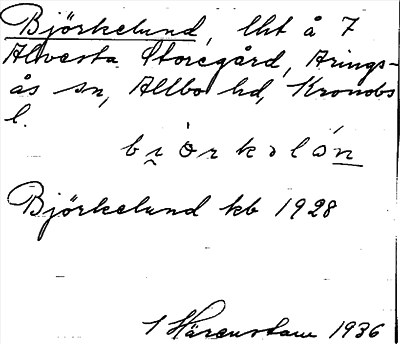 Björkelund, lht å 7
Alvesta Storegård, Arings-
ås sn, Allbo hd, Kronobs
l.
Björkelund kb 1928
1 Härenstam 1936